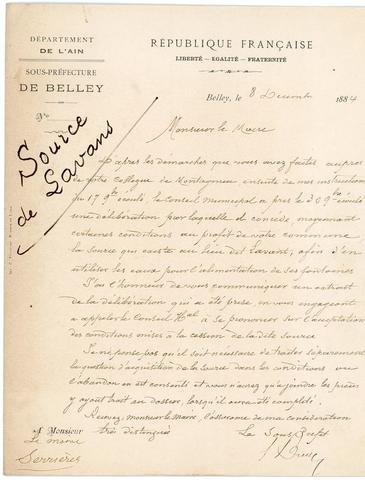 DÉPARTEMENT
DE L'AIN
SOUS-PRÉFECTURE
DE BELLEY
No
RÉPUBLIQUE FRANÇAISE
LIBERTÉ — EGALITÉ — FRATERNITÉ
Belley, le 8 Décembre 1884
Source
de Lavans
Monsieur le Maire
D'après les démarches que vous avez faites auprès
de votre collègue de Montagnieu, ensuite de mes instructions
du 17 9bre écoulé, le Conseil municipal a pris le 30 9bre écoulé
une délibération par laquelle il concède moyennant
certaines conditions au profit de votre commune
la source qui existe au lieu dit Lavant, afin d'en
utiliser les eaux pour l'alimentation de ses fontaines
J'ai l'honneur de vous communiquer un extrait
de la délibération qui a été prise, en vous engageant
à appeler le Conseil Mal à se prononcer sur l'acceptation
des conditions mises à la cession de la dite source
Je ne pense pas qu'il soit nécessaire de traiter séparément
la question d'acquisition de la source dans les conditions où
l'abandon en est consenti et vous n'aurez qu'à joindre les pièces
y ayant trait au dossier, lorsqu'il aura été complété.
Recevez, monsieur le maire, l'assurance de ma considération
très distinguée
Le Sous Préfet
A Monsieur
Le maire
Serrières